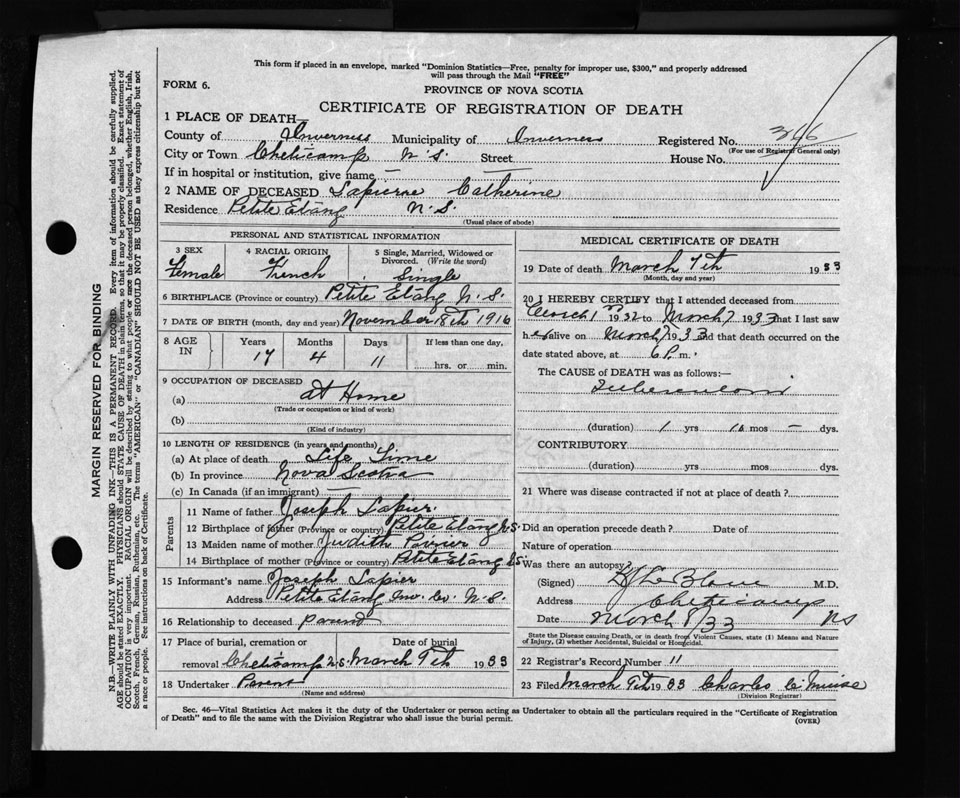 This form if placed in an envelope, marked "Dominion Statistics—Free, penalty for improper use, $300," and properly addressed
will pass through the Mail "FREE"
FORM 6.
PROVINCE OF NOVA SCOTIA
CERTIFICATE OF REGISTRATION OF DEATH
1 PLACE OF DEATH—
County of Inverness Municipality of Inverness Registered No. 346
(For use of Registrar General only)
City or Town Cheticamp N.S. Street House No.
If in hospital or institution, give name —
2 NAME OF DECEASED Lapierre Catherine
Residence Petite Etang N.S.
(Usual place of abode)
PERSONAL AND STATISTICAL INFORMATION
3 SEX Female
4 RACIAL ORIGIN French
5 Single, Married, Widowed or Divorced. (Write the word) Single
6 BIRTHPLACE (Province or country) Petite Etang N.S.
7 DATE OF BIRTH (month, day and year) November 18th 1916
8 AGE IN Years 17 Months 4 Days 11 If less than one day, hrs. or min.
9 OCCUPATION OF DECEASED
(a) at Home
(Trade or occupation or kind of work)
(b)
(Kind of industry)
10 LENGTH OF RESIDENCE (in years and months)
(a) At place of death Life Time
(b) In province Nova Scotia
(c) In Canada (if an immigrant) —
Parents
11 Name of father Joseph Lapier.
12 Birthplace of father (Province or country) Petite Etang N.S.
13 Maiden name of mother Judith
14 Birthplace of mother (Province or country) Petite Etang N.S.
15 Informant's name Joseph Lapier
Address Petite Etang Inv. Co. N.S.
16 Relationship to deceased Parent
17 Place of burial, cremation or Date of burial
removal Cheticamp N.S. March 9th 1933
18 Undertaker Parent
(Name and address)
MEDICAL CERTIFICATE OF DEATH
19 Date of death March 7th 1933
(Month, day and year)
20 I HEREBY CERTIFY that I attended deceased from
1932 to March 7 1933 that I last saw
her alive on March 7 1933 and that death occurred on the
date stated above, at 6 P. m.
The CAUSE of DEATH was as follows:—
Tuberculosis
(duration) 1 yrs mos — dys.
CONTRIBUTORY
(duration) yrs. mos. dys.
21 Where was disease contracted if not at place of death?
Did an operation precede death? Date of
Nature of operation
Was there an autopsy?
(Signed) LeBlanc M.D.
Address Cheticamp
Date March 8/33 NS
State the Disease causing Death, or in death from Violent Causes, state (1) Means and Nature
of Injury, (2) whether Accidental, Suicidal or Homicidal.
22 Registrar's Record Number 11
23 Filed March 9th 1933 Charles
(Division Registrar)
Sec. 46—Vital Statistics Act makes it the duty of the Undertaker or person acting as Undertaker to obtain all the particulars required in the "Certificate of Registration
of Death" and to file the same with the Division Registrar who shall issue the burial permit.
(OVER)
MARGIN RESERVED FOR BINDING
N.B.—WRITE PLAINLY WITH UNFADING INK—THIS IS A PERMANENT RECORD. Every item of information should be carefully supplied.
AGE should be stated EXACTLY. PHYSICIANS should STATE CAUSE OF DEATH in plain terms, so that it may be properly classified. Exact statement of
OCCUPATION is very important. RACIAL ORIGIN will be described by stating to what people or race the deceased person belonged, whether English, Irish,
Scotch, French, German, Russian, Ruthenian, etc. The terms "AMERICAN" or "CANADIAN" SHOULD NOT BE USED as they express citizenship but not
a race or people. See instructions on back of Certificate.